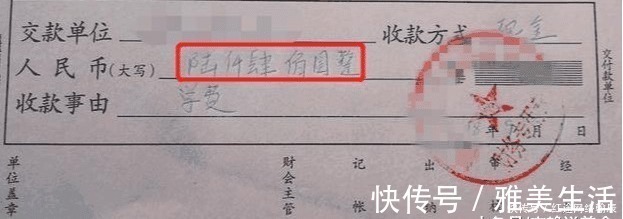 交款单位 收款方式 现金
人民币(大写) 陆仟肆佰圆整
收款事由 学费
年9月 日
交付款单位
单位盖章 财会主管 记帐 出纳 审核 经
快传号/雅美生活